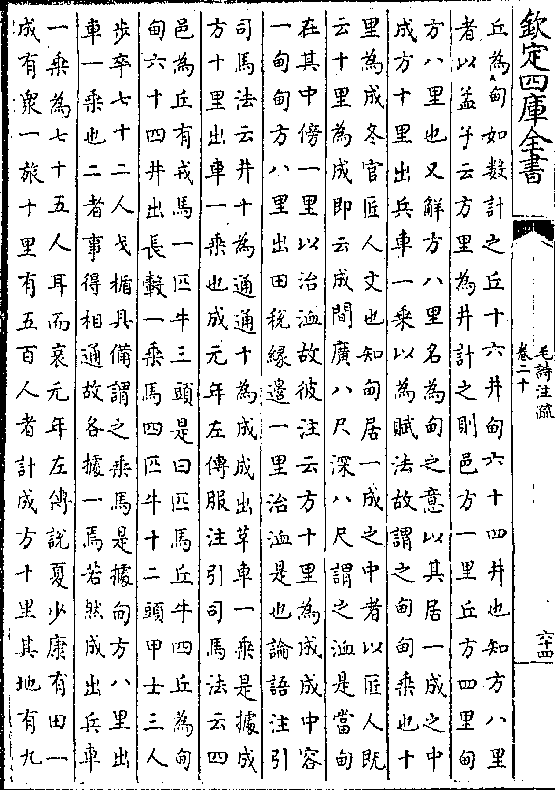 欽定四庫全書
毛詩注疏
卷二十
六十四
丘為甸如數計之丘十六井甸六十四井也知方八里
者以孟子云方里為井計之則邑方一里丘方四里甸
方八里也又解方八里名為甸之意以其居一成之中
成方十里出兵車一乘以為賦法故謂之甸甸乘也十
里為成冬官匠人文也知甸居一成之中者以匠人既
云十里為成即云成間廣八尺深八尺謂之洫是當甸
在其中傍一里以治洫故彼注云方十里為成成中容
一甸甸方八里出田稅緣邉一里治洫是也論語注引
司馬法云井十為通通十為成成出革車一乘是據成
方十里出車一乘也成元年左傳服注引司馬法云四
邑為丘有戎馬一匹牛三頭是曰匹馬丘牛四丘為甸
甸六十四井出長轂一乘馬四匹牛十二頭甲士三人
步卒七十二人戈楯具備謂之乘馬是據甸方八里出
車一乘也二者事得相通故各據一焉若然成出兵車
一乘為七十五人耳而哀元年左傳說夏少康有田一
成有衆一旅十里有五百人者計成方十里其地有九